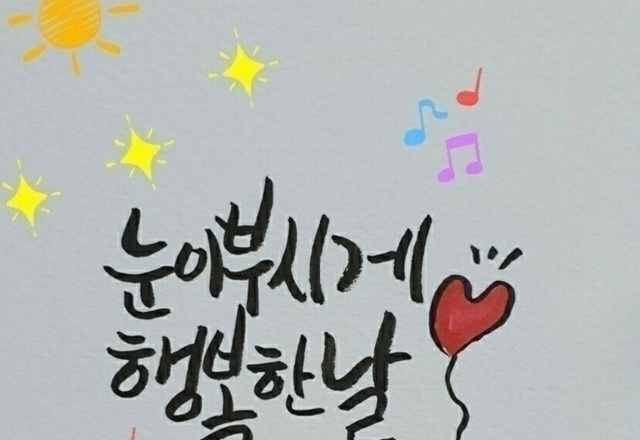 눈이부시게
행복한날